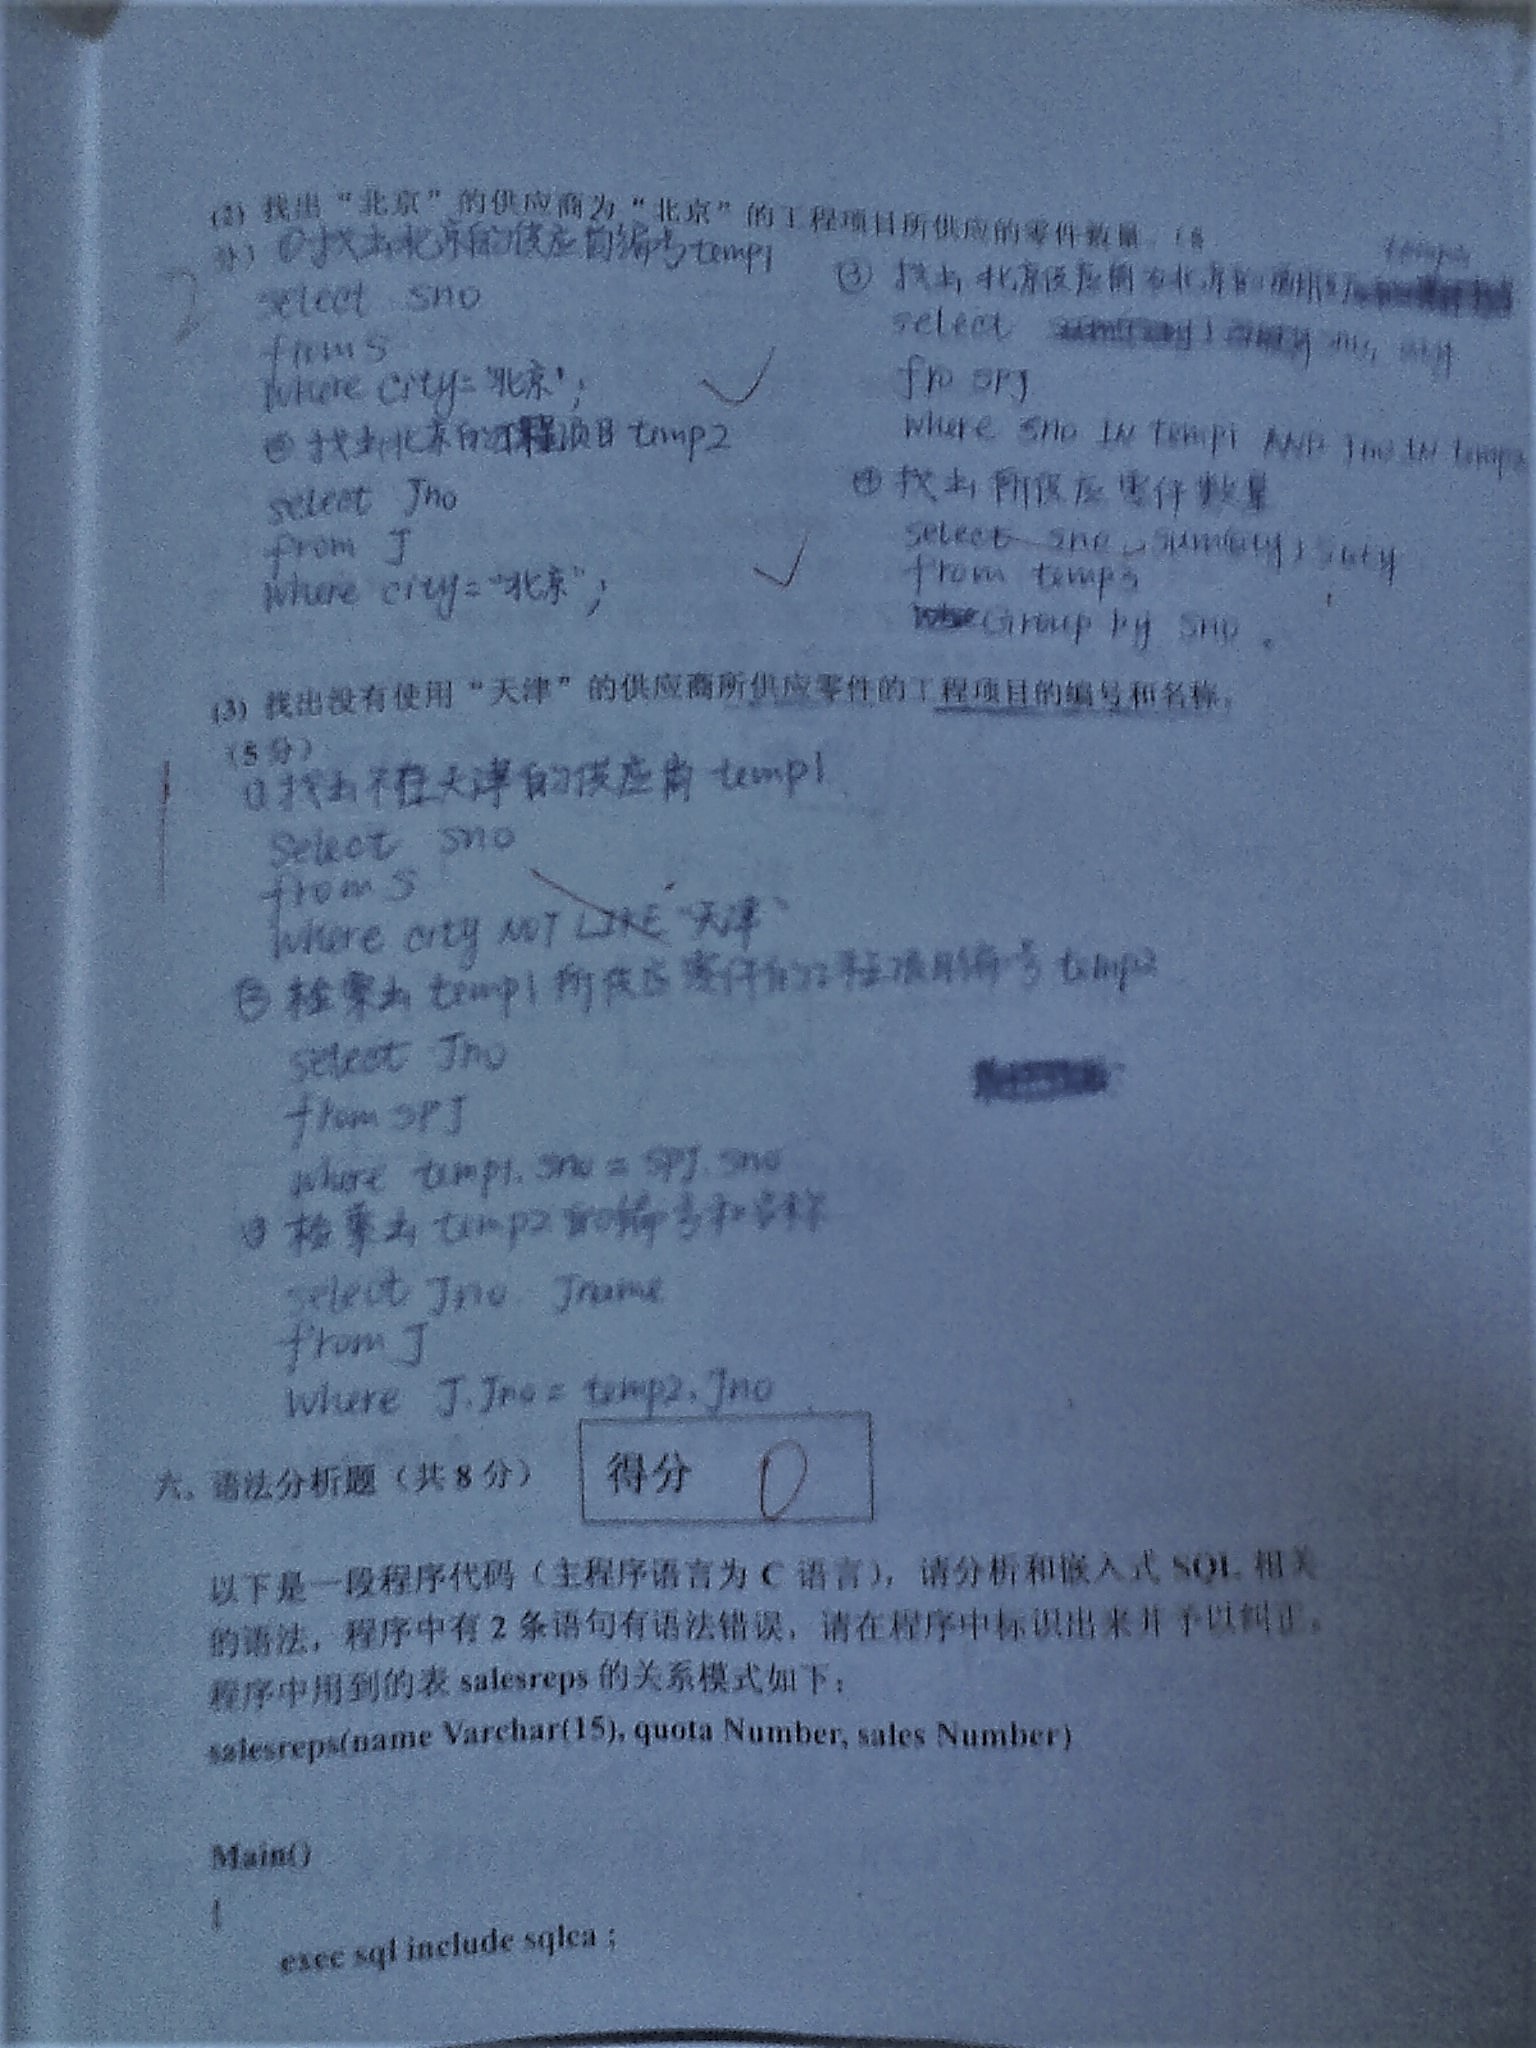 (2) 找出“北京”的供应商为“北京”的工程项目所供应的零件数量。(
分)
2
① 找出北京的供应商编号temp1
select sno
from S
where city='北京';
② 找出北京的工程项目temp2
select Jno
from J
where city="北京";
temp3
③ 找出北京供应商为北京的
select sno, qty
fro SPJ
where sno IN temp1 AND Jno IN temp2
④ 找出所供应零件数量
select sno, sum(qty)
from temp3
Group by sno.
(3) 找出没有使用“天津”的供应商所供应零件的工程项目的编号和名称。
(5分)
① 找出不在天津的供应商 temp1
Select sno
from S
where city NOT LIKE "天津"
② 检索出 temp1 所供应零件的工程项目编号 temp2
select Jno
from SPJ
where temp1.sno = SPJ.sno
③ 检索出 temp2 的编号和名称
select Jno Jname
from J
where J.Jno = temp2.Jno
六、语法分析题(共8分)
得分 0
以下是一段程序代码(主程序语言为 C 语言),请分析和嵌入式 SQL 相关
的语法,程序中有 2 条语句有语法错误,请在程序中标识出来并予以纠正。
程序中用到的表 salesreps 的关系模式如下:
salesreps(name Varchar(15), quota Number, sales Number)
Main()
{
exec sql include sqlca ;